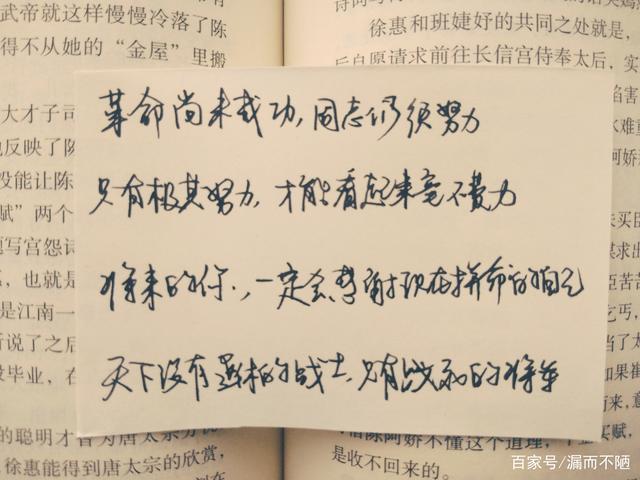 武帝就这样慢慢冷落了陈
得不从她的“金屋”里搬
大才子司
也反映了陈
没能让陈
赋”两个
写宫怨诗
，也就是
是江南一
听说了之后
毕业，在
的聪明才
徐惠能得到唐太宗的欣赏，
革命尚未成功,同志们须努力
只有极其努力,才能看起来毫不费力
将来的你,一定会感谢现在拼命的自己
天下没有的战士,只有的将军
徐惠和班婕妤的共同之处就是，
后自愿请求前往长信宫侍奉太后，实
陷害
水难重
阿娇
朱买臣
谋求出
臣苦苦
乞丐，
当了太
如果崔
来，意
买赋，
陈阿娇不懂这个道理，
是收不回来的。
百家号/漏而不陋